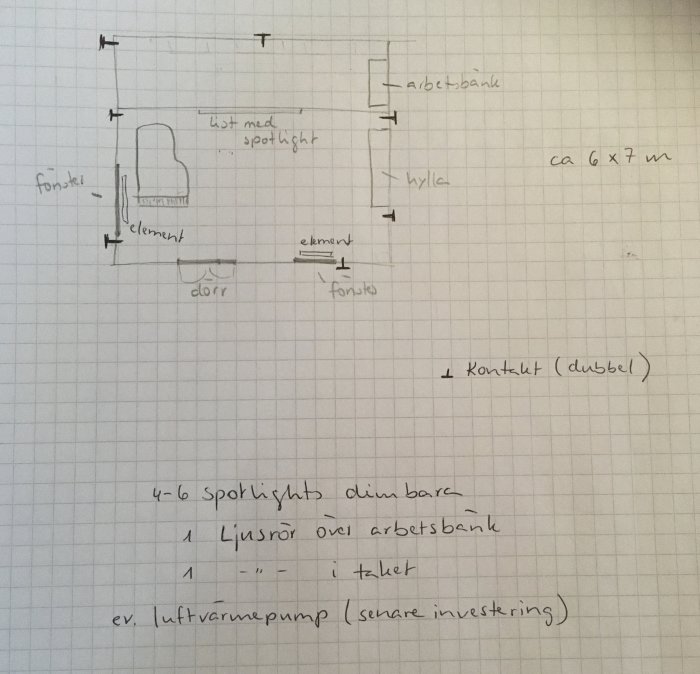 arbetsbänk
list med
spotlight
ca 6 x 7 m
fönster
hylla
element
element
dörr
fönster
Kontakt (dubbel)
4-6 spotlights dimbara
1 Ljusrör över arbetsbänk
1 -"- i taket
ev. luftvärmepump (senare investering)